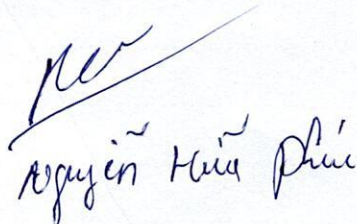 Nguyễn Hữu Phúc